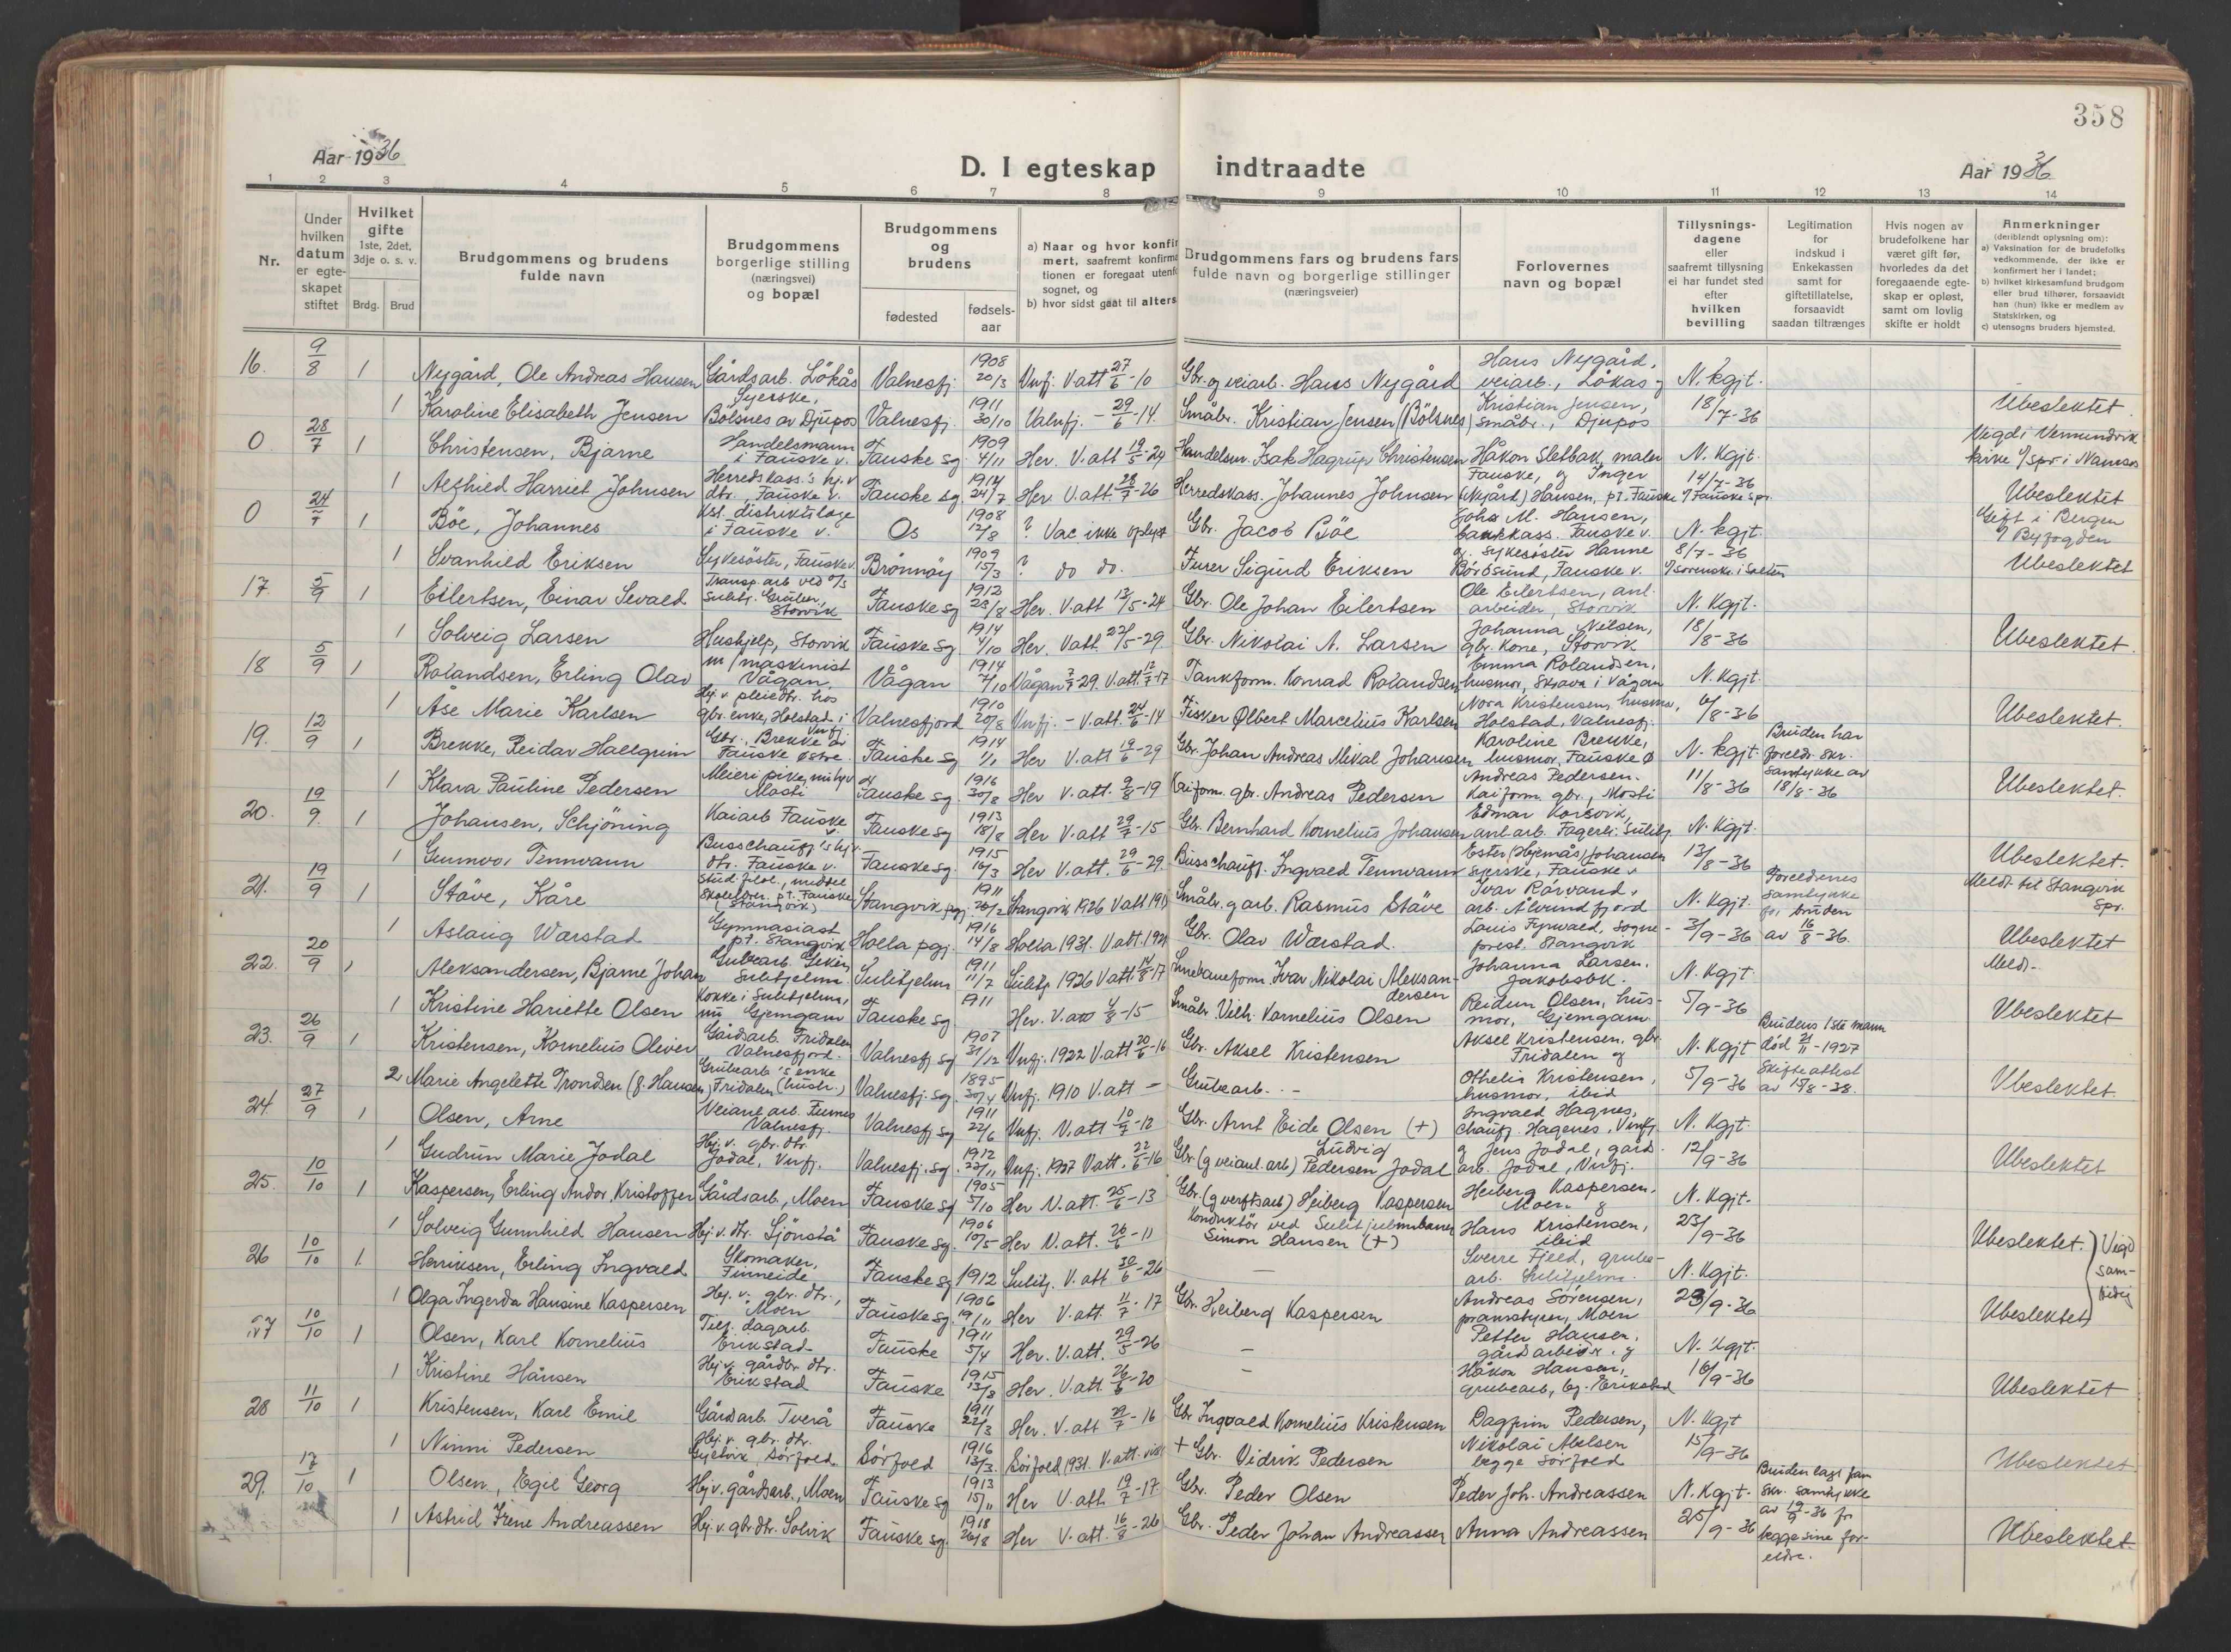 358
Aar 1936
D. I egteskap indtraadte
Aar 1936
1 2 3 4 5 6 7 8 9 10 11 12 13 14
Nr.
Under hvilken datum er egteskapet stiftet
Hvilket gifte 1ste, 2det, 3dje o. s. v.
Brdg. Brud
Brudgommens og brudens fulde navn
Brudgommens borgerlige stilling (næringsvei) og bopæl
Brudgommens og brudens
fødested
fødsels-aar
a) Naar og hvor konfir
mert, saafremt konfirma
tionen er foregaat utenfo
sognet, og
b) hvor sidst gaat til alters
Brudgommens fars og brudens fars fulde navn og borgerlige stillinger (næringsveier)
Forlovernes navn og bopæl
Tillysnings-dagene eller saafremt tillysning ei har fundet sted efter hvilken bevilling
Legitimation for indskud i Enkekassen samt for giftetillatelse, forsaavidt saadan tiltrænges
Hvis nogen av brudefolkene har været gift før, hvorledes da det foregaaende egteskap er opløst, samt om lovlig skifte er holdt
Anmerkninger
(deriblandt oplysning om):
a) Vaksination for de brudefolks vedkommende, der ikke er konfirmert her i landet;
b) hvilket kirkesamfund brudgom eller brud tilhører, forsaavidt han (hun) ikke er medlem av Statskirken, og
c) utensogns bruders hjemsted.
16. 9/8 1 Nygård, Ole Andreas Hansen Gårdsarb. Lökås Valnesfj. 1908 20/3 Vnfj. V.att 27/6-10 Gbr. og veiarb. Hans Nygård Hans Nygård, veiarb., Lökas og N. kgjt.
1 Karoline Elisabeth Jensen Syerske, Bölsnes av Djupos Valnesfj. 1911 30/10 Valnfj. - 29/6-14. Småbr. Kristian Jensen (Bölsnes) Kristian Jensen, småbr., Djupos 18/7-36 Ubeslektet.
0 28/7 1 Christensen, Bjarne Handelsmann i Fauske v. Fauske sg. 1909 4/11 Her. V.att 19/5-24 Handelsm. Isak Hagrup Christensen Håkon Sletbak, maler N. Kgjt. Vigd i Vemundvik kirke
1 Alfhild Harriet Johnsen Herredskass.'s hj.v. dtr., Fauske v. Fauske sg. 1914 24/7 Her. V.att 28/7-26 Herredskass. Johannes Johnsen Fauske, og Inger (Nygård) Hansen, pt. Fauske 14/7-36 Ubeslektet
0 24/7 1 Böe, Johannes Kst. distriktslæge i Fauske v. Os 1908 12/8 ? Vac. ikke oplyst Gbr. Jacob Böe John M. Hansen, bankkass. Fauske v. N. kgjt. Gift i Bergen
1 Svanhild Eriksen Sykesöster, Fauske v. Brönnöy 1909 15/3 ? do do. Furer Sigurd Eriksen og sykesöster Hanne Börösund, Fauske v. 8/7-36 Ubeslektet
17. 5/9 1 Eilertsen, Einar Sevald Transp.arb ved a/s Sulitj. Gruber, Storvik Fauske sg 1912 23/8 Her. V.att 13/5-24 Gbr. Ole Johan Eilertsen Ole Eilertsen, anl. arbeider, Storvik N. Kgjt.
1 Solveig Larsen Hushjelp, Storvik Fauske sg 1914 4/10 Her. Vatt. 22/5-29 Gbr. Nikolai A. Larsen Johanna Nilsen, gbr. kone, Storvik 18/8-36 Ubeslektet.
18 5/9 1 Rolandsen, Erling Olav m/maskinist Vågan. Vågan 1914 7/10 Vågan 29. V.att. 12/7-17 Tankform. Konrad Rolandsen Emma Rolandsen, husmor, Skjava i Vågan N. Kgjt.
1 Åse Marie Karlsen Hj.v. pleiedtr. hos gbr. enke, Holstad i Vnfj. Valnesfjord 1910 20/8 Vnfj. - V.att. 24/5-14 Fisker Ølbert Marcelius Karlsen Nora Kristensen, husmor, Holstad, Valnesfj. 6/8-36 Ubeslektet.
19. 12/9 1 Brekke, Reidar Hallgrim Gbr. Brekke av Fauske østre. Fauske sg 1914 1/1 Her V.att 19/6-29 Gbr. Johan Andreas Mikal Johansen Karoline Brekke, husmor, Fauske ø N. kgjt. Bruden har foreldr. skr. samtykke av 18/8-36
1 Klara Pauline Pedersen Meieripike, nu hjv Mosti Fauske sg. 1916 30/8 Her V.att. 9/8-19 Kaiform. gbr. Andreas Pedersen Andreas Pedersen. Kaiform. gbr., Mosti 11/8-36 Ubeslektet.
20. 19/9 1 Johansen, Schjöning Kaiarb Fauske v. Fauske sg 1913 18/8 Her V.att 29/7-15 Gbr. Bernhard Kornelius Johansen Edmar Korsvik, anl.arb. Fagerli. Sulitj. N. Kgjt.
1 Gunnvor Tennvann Busschauff.'s hj.v. dtr. Fauske v. Fauske sg. 1915 10/3 Her V.att. 29/6-29. Busschauff. Ingvald Tennvann Ester (Hjemås) Johansen syerske, Fauske v 13/8-36 Ubeslektet.
21. 19/9 1 Stöve, Kåre Stud. filol., middelskolelærer. pt. Fauske (Stangvik) Stangvik pgj. 1911 20/2 Stangvik 1926 V.att 1915 Småbr. g arb. Rasmus Stöve Ivar Rörvand, arb. Ålvundfjord N. Kgjt. Foreldrenes samtykke for bruden av 16/8-36. Meldt til Stangvik Spr.
1 Aslaug Warstad Gymnasiast pt. Stangvik Holla pgj. 1916 14/8 Holla 1931. V.att. 1921 Gbr. Olav Warstad. Louis Fyrwald, sogneprest. Stangvik 3/9-36 Ubeslektet
22. 20/9 1 Aleksandersen, Bjarne Johan Grubearb. Giken Sulitjelma Sulitjelma 1911 11/7 Sulitj. 1926 V.att 14/8-17 Linebaneform. Ivar Nikolai Aleksandersen Johanna Larsen. Jakobsbk. N. Kgjt. Meldt.
1 Kristine Hariette Olsen Kokke i Sulitjelma, nu Gjemgam Fauske sg 1911 Her. V.att 4/8-15 Småbr. Vilh. Kornelius Olsen Reidun Olsen, husmor, Gjemgam 5/9-36 Ubeslektet
23. 26/9 1 Kristensen, Kornelius Oliver Gårdsarb. Fridalen Valnesfjord. Valnesfj sg 1907 31/12 Vnfj. 1922 V.att 20/6-16 Gbr. Aksel Kristensen Aksel Kristensen, gbr. Fridalen og N. Kgjt Brudens 1ste mann död 21/11-1927 Skifteattest av 15/8-28.
2 Marie Angelette Tronden (f. Hansen) Grubearb's enke Fridalen (hustr.) Valnesfj. sg. 1895 30/4 Vnfj. 1910 V.att - Grubearb. - - Othelie Kristensen, husmor, ibid 5/9-36 Ubeslektet.
24. 27/9 1 Olsen, Arne Veianl.arb. Furnes Valnesfj. Valnesfj sg 1911 22/6 Vnfj. V.att 10/7-12 Gbr. Arnt Eide Olsen (+) Ingvald Hagnes, chauff. Hagenes, Vnfj. N. Kgjt.
1 Gudrun Marie Jodal Hj.v. gbr. dtr. Jodal, Vnfj. Valnesfj. sg. 1912 22/11 Vnfj. 1927 V.att. 22/6-16 Gbr. (g veianl. arb) Ludvig Pedersen Jodal g Jens Jodal, gårdarb. Jodal, Vnfj. 12/9-36 Ubeslektet
25. 10/10 1 Kaspersen, Erling Andor Kristoffer Gårdsarb., Moen Fauske sg 1905 5/10 Her V.att. 25/6-13 Gbr. (g verftsarb) Heiberg Kaspersen Heiberg Kaspersen. Moen. g N. Kgjt.
1 Solveig Gunnhild Hansen Hj.v. dtr. Sjönstå Fauske sg. 1906 10/5 Her V.att. 26/6-11 Konduktör ved Sulitjelmabanen Simon Hansen (+) Hans Kristensen, ibid 23/9-36 Ubeslektet. } Vigd samtidig
26 10/10 1. Henriksen, Erling Ingvald Skomaker, Finneide Fauske sg 1912 Sulitj. V.att 30/6-26 — Sverre Fjeld, grubearb. Sulitjelma. N. Kgjt.
1 Olga Ingerda Hansine Kaspersen Hj. v. gbr. dtr., Moen Fauske sg 1906 19/11 Her V.att 11/7-17 Gbr. Heiberg Kaspersen Andreas Sörensen, pramstyrer, Moen 23/9-36 Ubeslektet
27 10/10 1 Olsen, Karl Kornelius Tilf. dagarb. Erikstad Fauske 1911 5/4 Her. V.att. 29/5-26 — Petter Hansen, gårdsarbeider. g N. Kgjt.
1 Kristine Hånsen Hj.v. gårdbr. dtr. Erikstad Fauske 1915 13/8 Her. V.att. 26/6-20 — Håkon Hansen, grubearb, bg. Erikstad 16/9-36 Ubeslektet
28 11/10 1 Kristensen, Karl Emil Gårdsarb. Tverå Fauske 1911 22/3 Her. V.att 29/7-16 Gbr Ingvald Kornelius Kristensen Dagfinn Pedersen, N. Kgjt
1 Ninni Pedersen Hj.v. gbr. dtr. Gjelvik Sörfold Sörfold 1916 13/3. Sörfold 1931. V.att. + Gbr. Vidrik Pedersen Nikolai Abelsen begge Sörfold 15/9-36 Ubeslektet
29. 17/10 1 Olsen, Egil Georg Hj.v. gårdsarb., Moen Fauske sg 1913 15/11 Her V.att. 19/7-17 Gbr. Peder Olsen Peder Joh. Andreassen N. Kgjt. Bruden lagt fram skr. samtykke av 19/9-36 fr begge sine foreldre.
1 Astrid Irene Andreassen Hj.v. gbr dtr. Solvik Fauske sg. 1918 26/8 Her V.att. 16/8-26 Gbr. Peder Johan Andreassen Anna Andreassen 25/9-36 Ubeslektet.